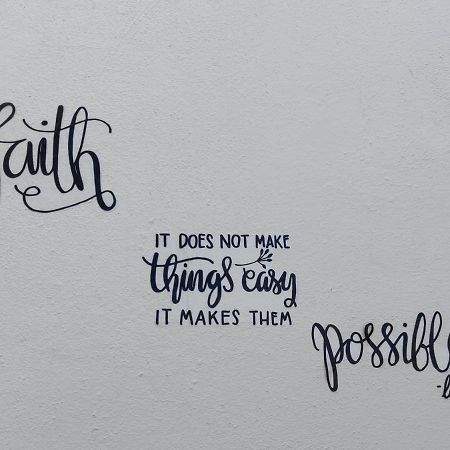 faith
IT DOES NOT MAKE
things easy
IT MAKES THEM
possible